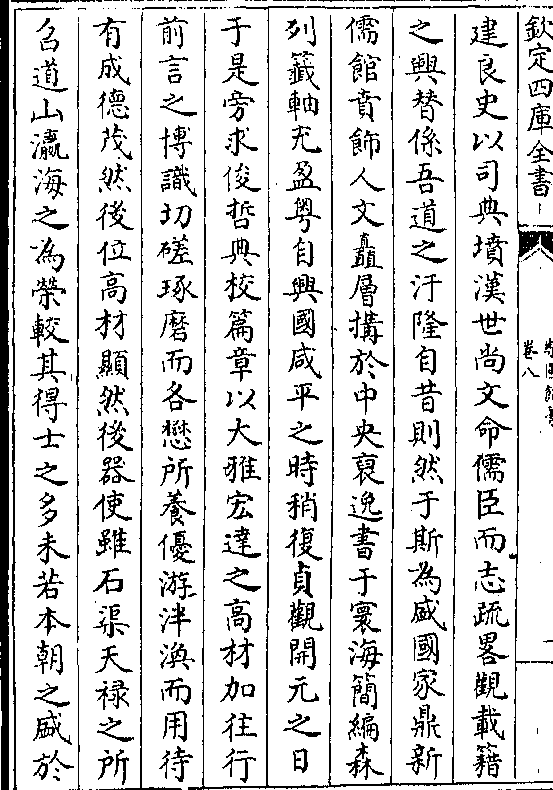 欽定四庫全書
卷八
建良史以司典墳漢世尚文命儒臣而志疏畧觀載籍
之興替係吾道之汙隆自昔則然于斯為盛國家鼎新
儒館賁飾人文矗層搆於中央裒逸書于寰海簡編森
列籤軸充盈粤自興國咸平之時稍復貞觀開元之日
于是旁求俊哲典校篇章以大雅宏達之高材加往行
前言之博識切磋琢磨而各懋所養優游泮渙而用待
有成德茂然後位高材顯然後器使雖石渠天禄之所
名道山瀛海之為榮較其得士之多未若本朝之盛於